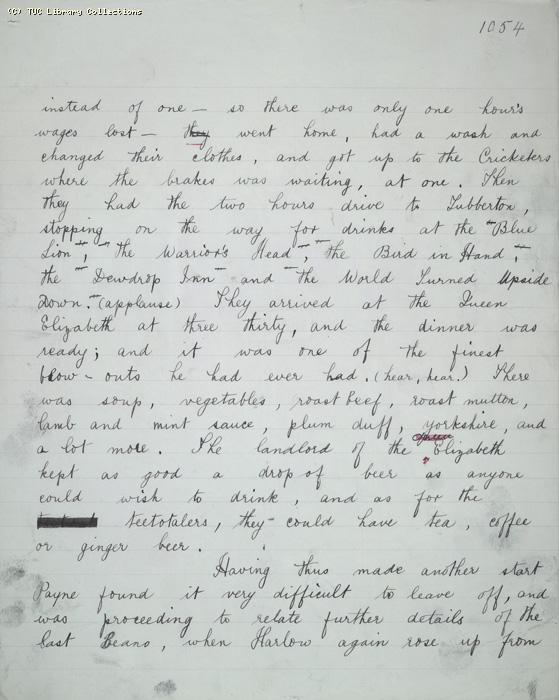 (C) TUC Library Collections
1054
instead of one — so there was only one hour's
wages lost — they went home, had a wash and
changed their clothes, and got up to the Cricketers
where the brakes was waiting, at one. Then
they had the two hours drive to Tubberton,
stopping on the way for drinks at the "Blue
Lion", "The Warrior's Head", "the Bird in Hand",
the "Dewdrop Inn" and "the World Turned Upside
Down." (applause) They arrived at the Queen
Elizabeth at three thirty, and the dinner was
ready; and it was one of the finest
blow-outs he had ever had. (hear, hear.) There
was soup, vegetables, roast beef, roast mutton,
lamb and mint sauce, plum duff, yorkshire, and
a lot more. The landlord of the Elizabeth
kept as good a drop of beer as anyone
could wish to drink, and as for the
teetotalers, they could have tea, coffee
or ginger beer.
Having thus made another start
Payne found it very difficult to leave off, and
was proceeding to relate further details of the
last Beano, when Harlow again rose up from